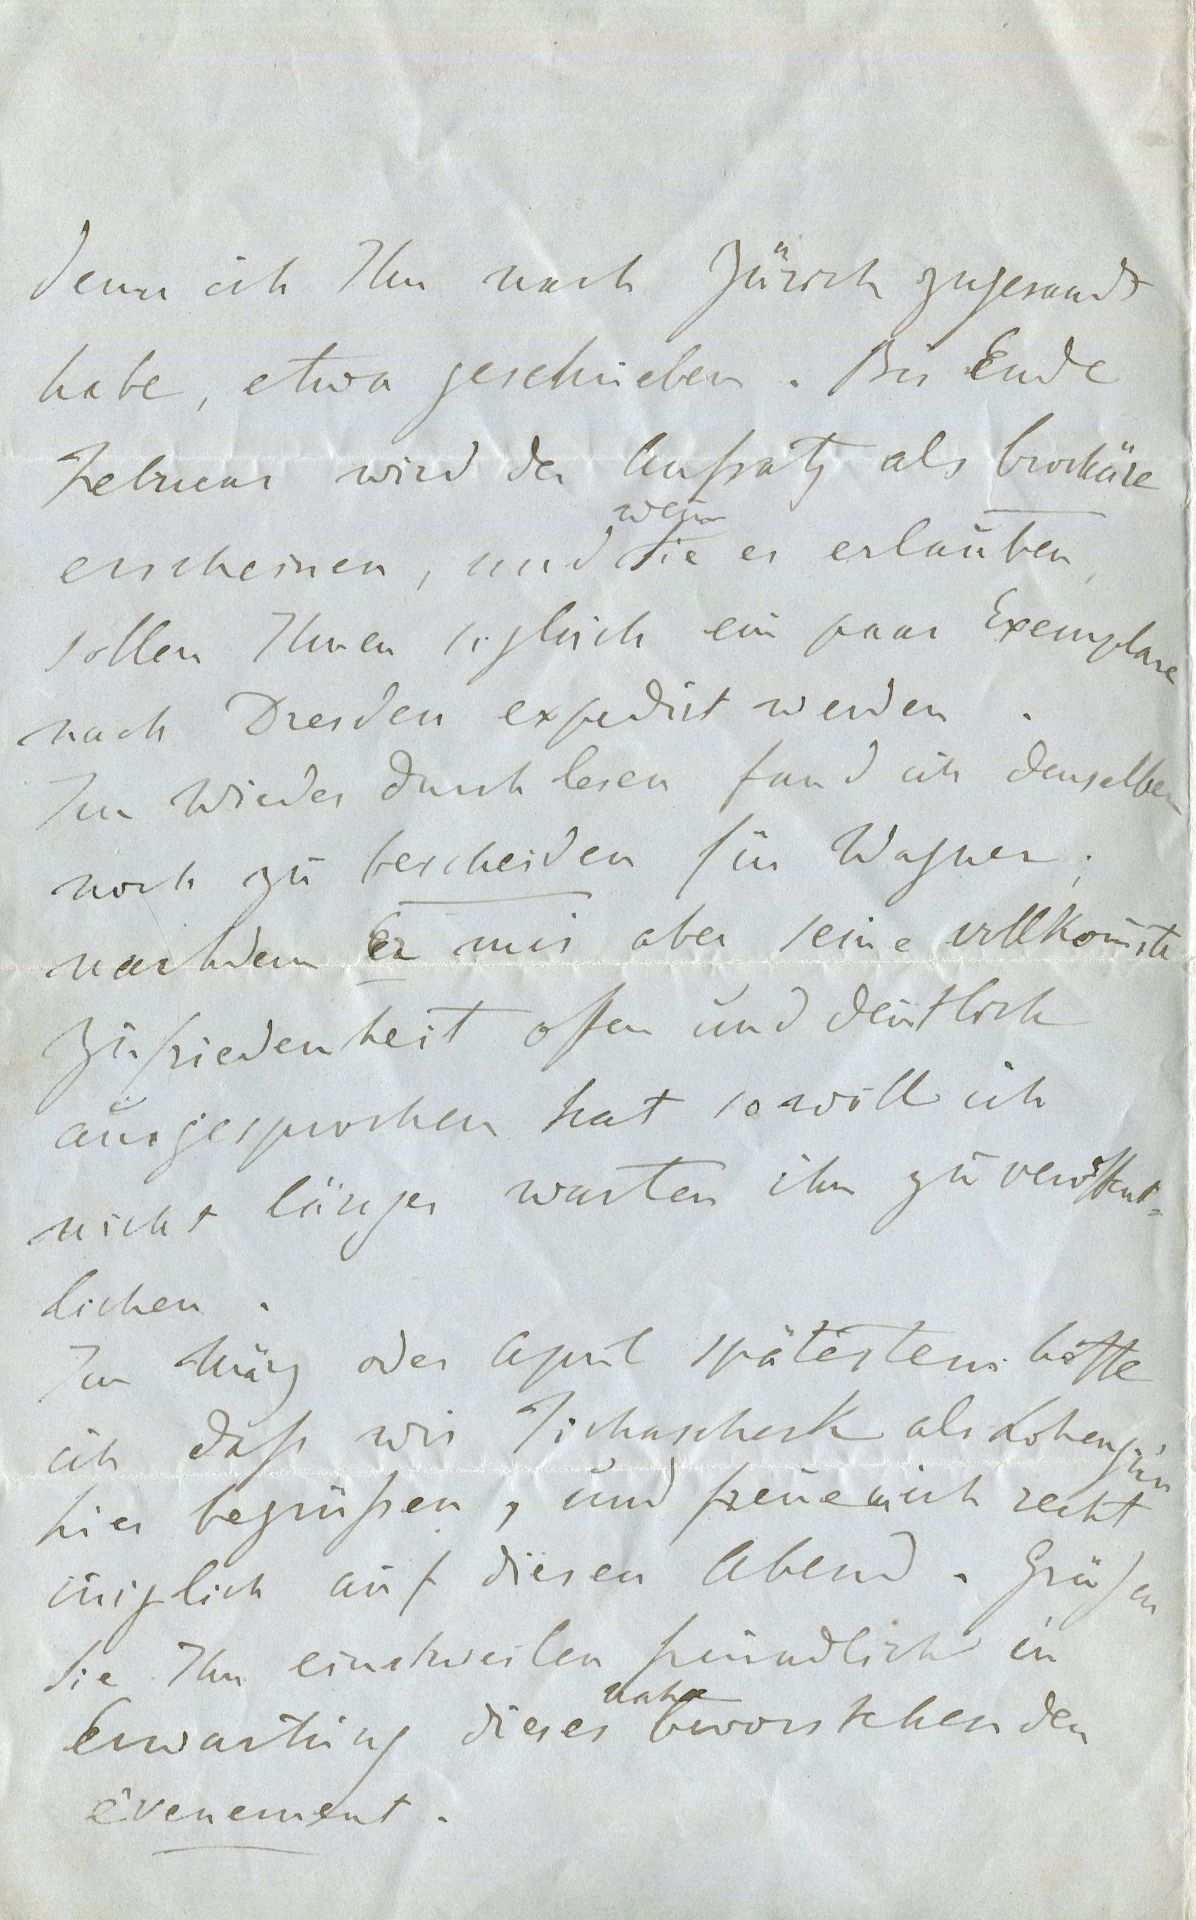 denn ich Ihm nach Zürich zugesandt
habe, etwa geschrieben. Bis Ende
Februar wird der Aufsatz als brochüre
erscheinen, und wenn Sie es erlauben,
sollen Ihnen sogleich ein paar Exemplare
nach Dresden expedirt werden.
Im Wieder durchlesen fand ich denselben
noch zu bescheiden für Wagner;
nachdem Er mir aber seine vollkomste
Zufriedenheit offen und deutlich
ausgesprochen hat so will ich
nicht länger warten ihn zu veröffent=
lichen.
Im März oder April spätestens hoffe
ich daß wir Tichascheck als Lohengrin
hier begrüßen, und freue mich recht
inniglich auf diesen Abend. Grüßen
Sie Ihn einstweilen freundlich in
Erwartung dieses nahe bevorstehenden
évenement.